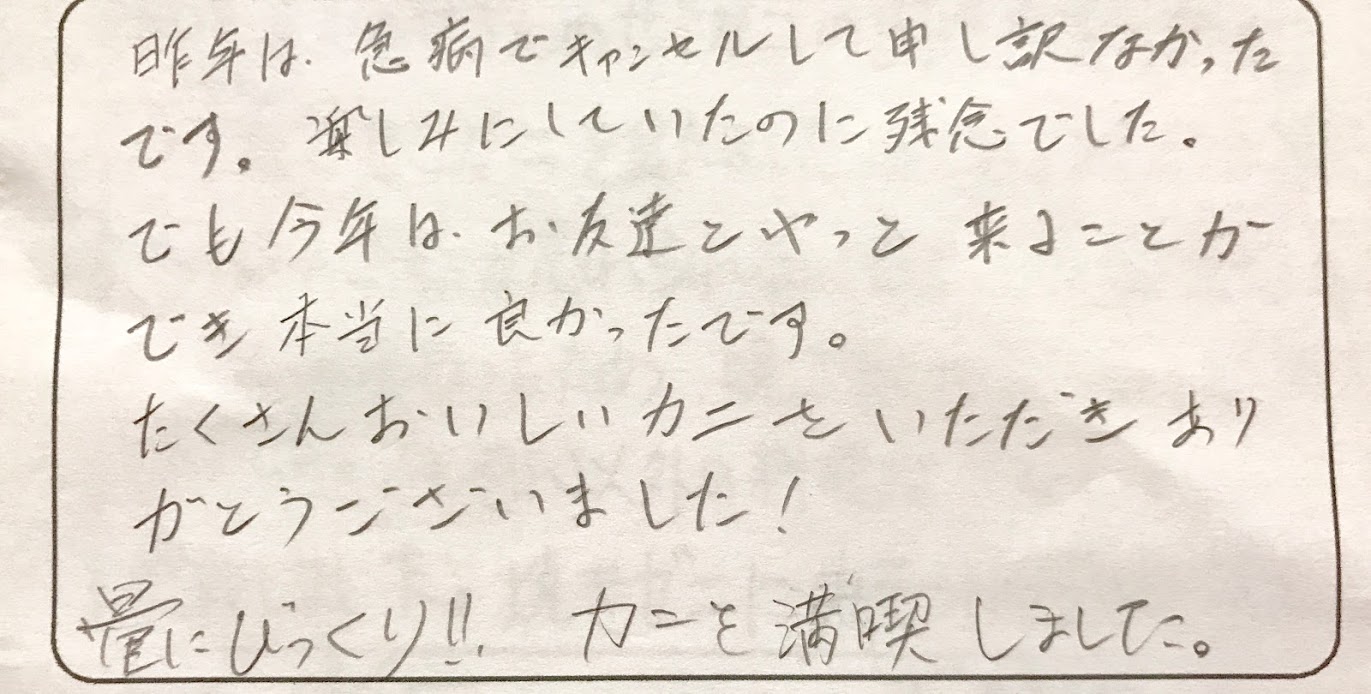 昨年は、急病でキャンセルして申し訳なかった
です。楽しみにしていたのに残念でした。
でも今年は、お友達とやっと来ることが
でき本当に良かったです。
たくさんおいしいカニをいただきあり
がとうございました!
量にびっくり!!カニを満喫しました。